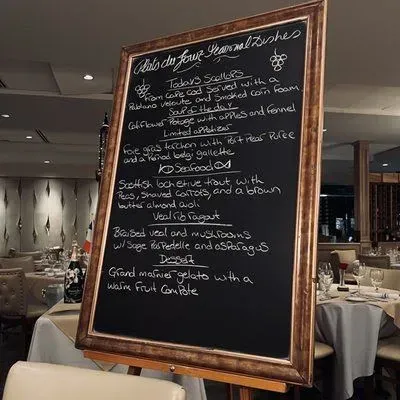 Plats du jour Seasonal Dishes
Todays Scallops
From Cape Cod Served with a
Poblano veloute and Smoked corn foam.
Soup of the day
Califlower Potage with apples and fennel
Limited appetizer
Foie gras torchon with Port Pear Puree
and a
gallette
Seafood
Scottish loch etive trout with
Peas, Shaved carrots, and a brown
butter almond aioli
Veal rib ragout
Braised veal and mushrooms
w/ Sage Parpedelle and asparagus
Dessert
Grand marnier gelato with a
warm Fruit Compote